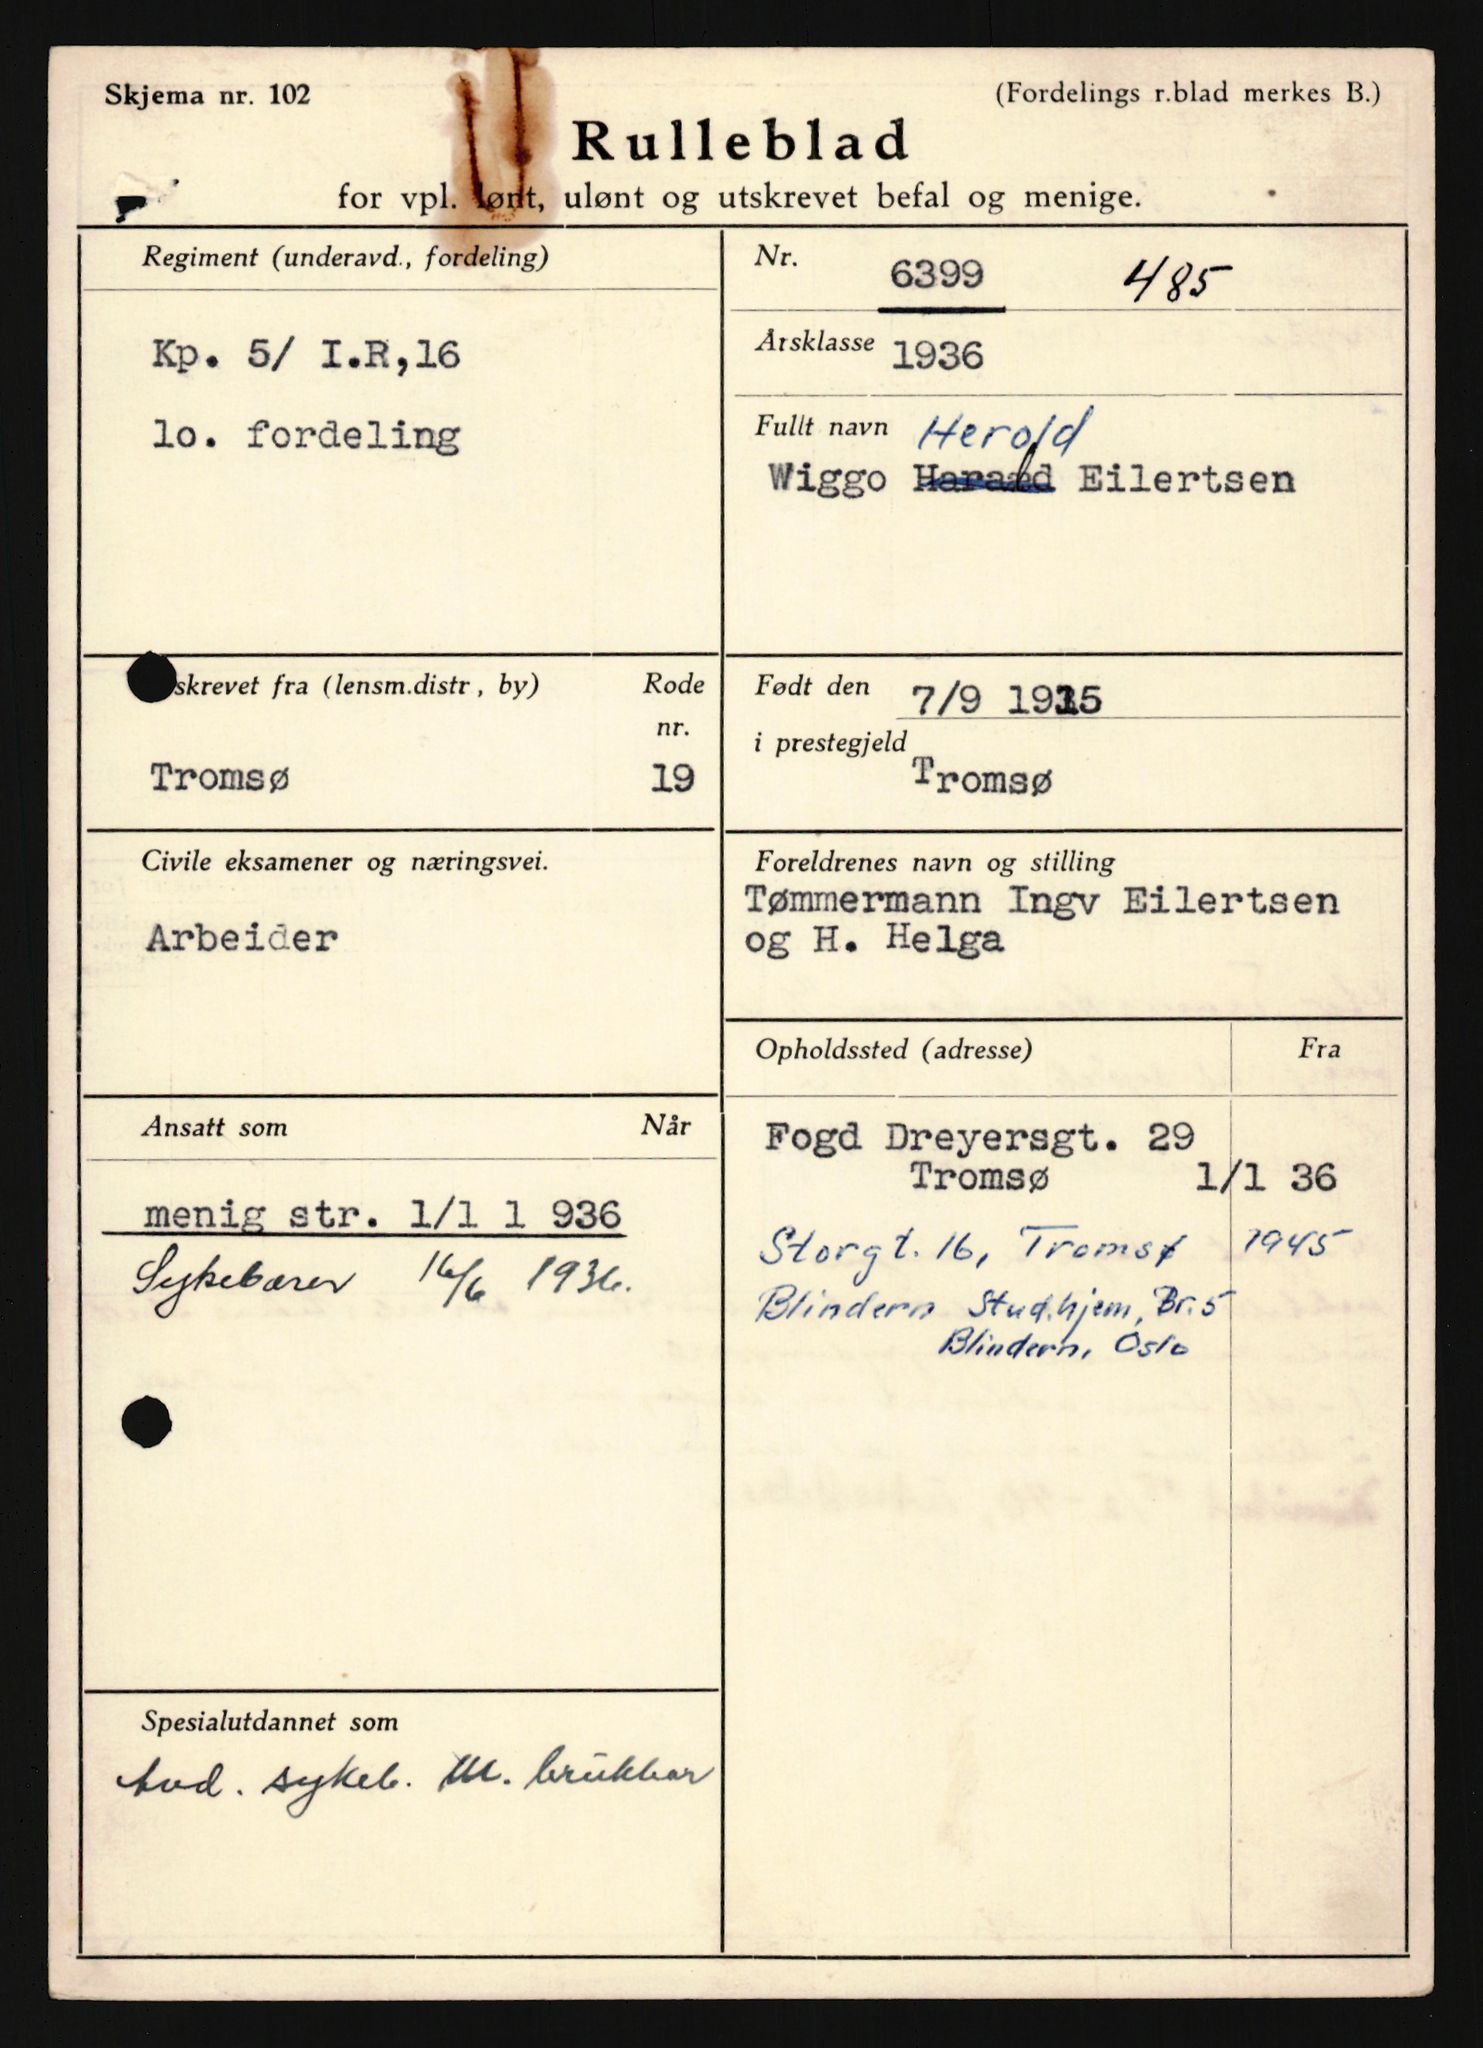 Skjema nr. 102
(Fordelings r.blad merkes B.)
Rulleblad
for vpl. lønt, ulønt og utskrevet befal og menige.
Regiment (underavd., fordeling)
Kp. 5/ I.R,16
lo. fordeling
Nr. 6399 485
Årsklasse 1936
Fullt navn Herold
Wiggo Harald Eilertsen
skrevet fra (lensm.distr, by) Rode
nr.
Tromsø 19
Født den 7/9 1915
i prestegjeld
Tromsø
Civile eksamener og næringsvei.
Arbeider
Foreldrenes navn og stilling
Tømmermann Ingv Eilertsen
og H. Helga
Ansatt som Når
menig str. 1/1 1 936
Sykebærer 16/6 1936.
Opholdssted (adresse) Fra
Fogd Dreyersgt. 29
Tromsø 1/1 36
Storgt. 16, Tromsø 1945
Blindern Stud.hjem, Br. 5
Blindern, Oslo
Spesialutdannet som
Avd. sykeb. M. brukbar